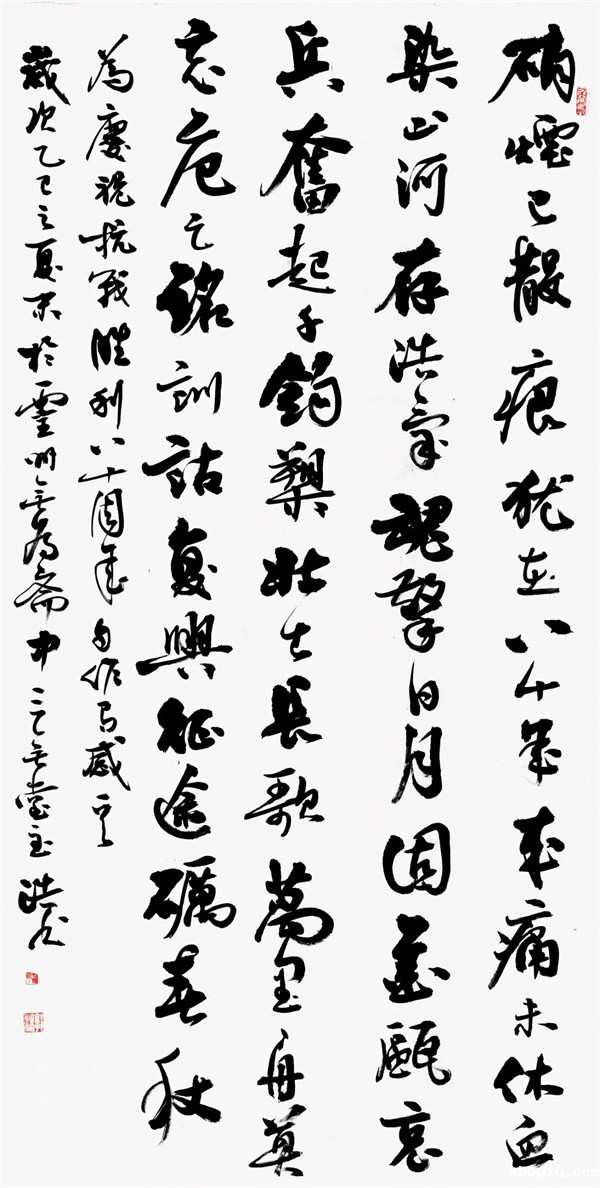 硝煙已散痕猶在八十年来痛未休血
染山河存浩氣魂擎日月固金甌哀
兵奮起千鈞槊壯士長歌萬里舟莫
忘危亡銘訓詁復興征途礪春秋
為慶祝抗戰勝利八十周年自作有感
歲次乙巳之夏末於靈州無為齋中堂主